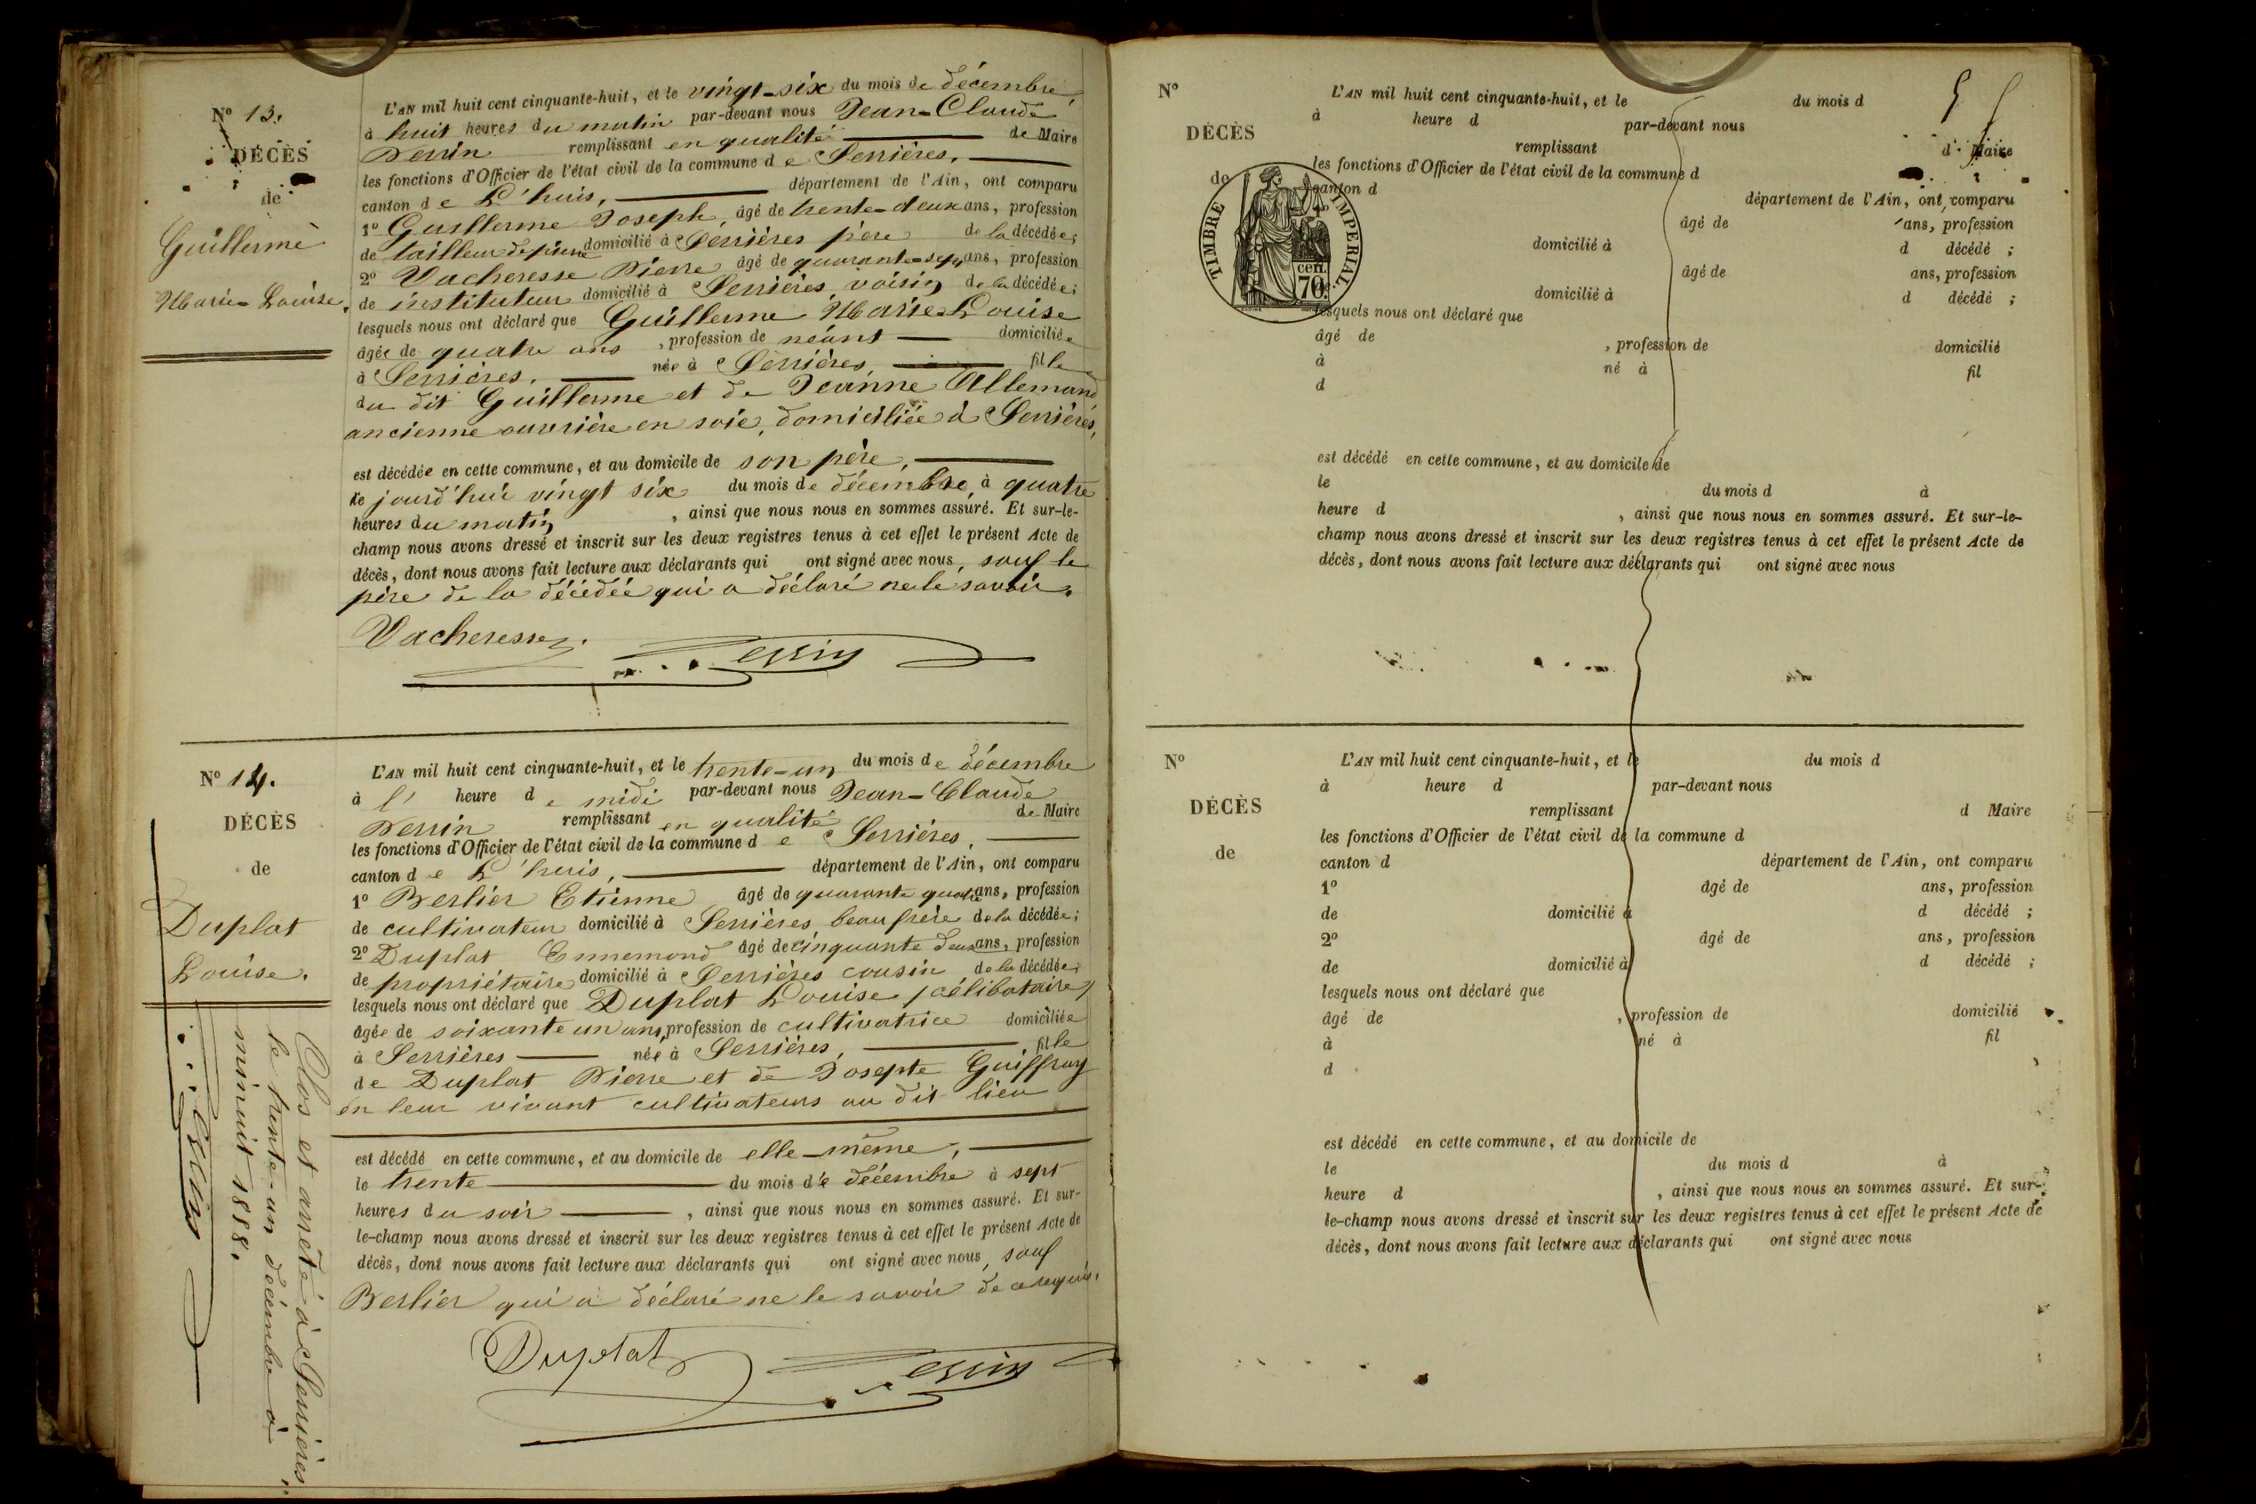 N° 13.
DÉCÈS
de
Guillerme
Marie-Louise.
L'AN mil huit cent cinquante-huit, et le vingt-six du mois de décembre,
à huit heures du matin par-devant nous Jean-Claude
Perrin remplissant en qualité de Maire
les fonctions d'Officier de l'état civil de la commune de Serrières,
canton de L'huis, département de l'Ain, ont comparu
1° Guillerme Joseph, âgé de trente-deux ans, profession
de tailleur de pierre domicilié à Serrières père de la décédée;
2° Vacheresse Pierre âgé de quarante-sept ans, profession
de instituteur domicilié à Serrières voisin de la décédée;
lesquels nous ont déclaré que Guillerme Marie-Louise
âgée de quatre ans, profession de néant domiciliée
à Serrières, née à Serrières, fille
du dit Guillerme et de Jeanne Allemand
ancienne ouvrière en soie, domiciliée à Serrières,
est décédée en cette commune, et au domicile de son père,
ce jourd'hui vingt six du mois de décembre, à quatre
heures du matin, ainsi que nous nous en sommes assuré. Et sur-le-
champ nous avons dressé et inscrit sur les deux registres tenus à cet effet le présent Acte de
décès, dont nous avons fait lecture aux déclarants qui ont signé avec nous, sauf le
père de la décédée qui a déclaré ne le savoir.
Vacheresse. Perrin
N° 14.
DÉCÈS
de
Duplat
Louise.
L'AN mil huit cent cinquante-huit, et le trente-un du mois de décembre
à l' heure de midi par-devant nous Jean-Claude
Perrin remplissant en qualité de Maire
les fonctions d'Officier de l'état civil de la commune de Serrières,
canton de L'huis, département de l'Ain, ont comparu
1° Berlier Etienne âgé de quarante quatre ans, profession
de cultivateur domicilié à Serrières beau frère de la décédée;
2° Duplat Ennemond âgé de cinquante deux ans, profession
de propriétaire domicilié à Serrières cousin de la décédée;
lesquels nous ont déclaré que Duplat Louise (célibataire)
âgée de soixante un ans, profession de cultivatrice domiciliée
à Serrières née à Serrières, fille
de Duplat Pierre et de Josepte Guiffray
en leur vivant cultivateurs au dit lieu
est décédé en cette commune, et au domicile de elle-même,
le trente du mois de décembre à sept
heures du soir, ainsi que nous nous en sommes assuré. Et sur-
le-champ nous avons dressé et inscrit sur les deux registres tenus à cet effet le présent Acte de
décès, dont nous avons fait lecture aux déclarants qui ont signé avec nous, sauf
Berlier qui a déclaré ne le savoir de ce requis.
Duplat Perrin
Clos et arrêté à Serrières,
le trente-un décembre à
minuit 1858.
Perrin
N°
DÉCÈS
de
TIMBRE IMPERIAL
70 cen.
L'AN mil huit cent cinquante-huit, et le du mois d
à heure d par-devant nous
remplissant d Maire
les fonctions d'Officier de l'état civil de la commune d
canton d département de l'Ain, ont comparu
âgé de ans, profession
domicilié à d décédé ;
âgé de ans, profession
domicilié à d décédé ;
lesquels nous ont déclaré que
âgé de , profession de domicilié
à né à fil
d
est décédé en cette commune, et au domicile de
le du mois d à
heure d , ainsi que nous nous en sommes assuré. Et sur-le-
champ nous avons dressé et inscrit sur les deux registres tenus à cet effet le présent Acte de
décès, dont nous avons fait lecture aux déclarants qui ont signé avec nous
N°
DÉCÈS
de
L'AN mil huit cent cinquante-huit, et le du mois d
à heure d par-devant nous
remplissant d Maire
les fonctions d'Officier de l'état civil de la commune d
canton d département de l'Ain, ont comparu
1° âgé de ans, profession
de domicilié à d décédé ;
2° âgé de ans, profession
de domicilié à d décédé ;
lesquels nous ont déclaré que
âgé de , profession de domicilié
à né à fil
d
est décédé en cette commune, et au domicile de
le du mois d à
heure d , ainsi que nous nous en sommes assuré. Et sur-
le-champ nous avons dressé et inscrit sur les deux registres tenus à cet effet le présent Acte de
décès, dont nous avons fait lecture aux déclarants qui ont signé avec nous